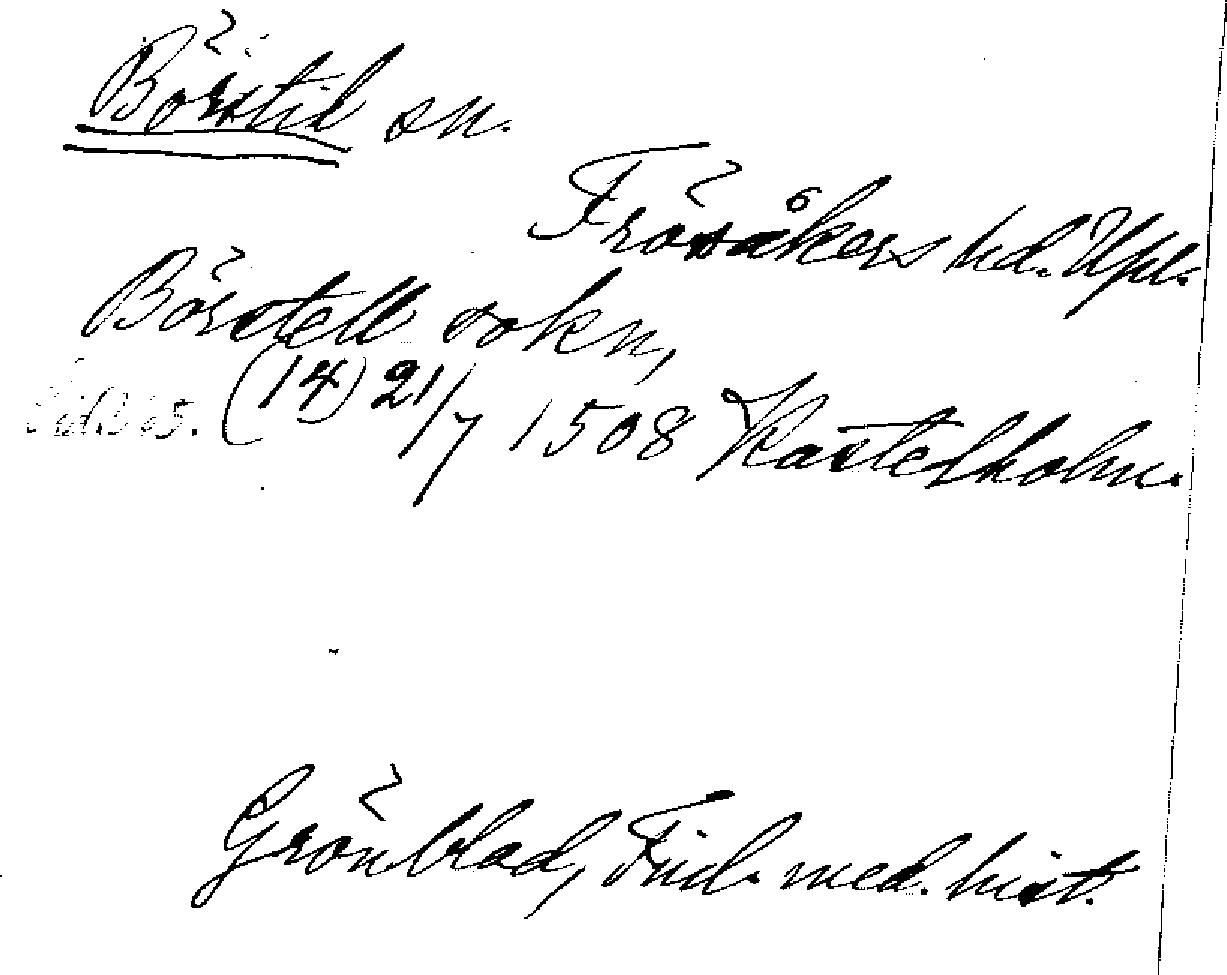 Börstil sn.
Frösåkers hd. Upl.
Börstell sokn,
(14) 21/7 1508 Kastelholm.
Grönblad, Finl. med. hist.